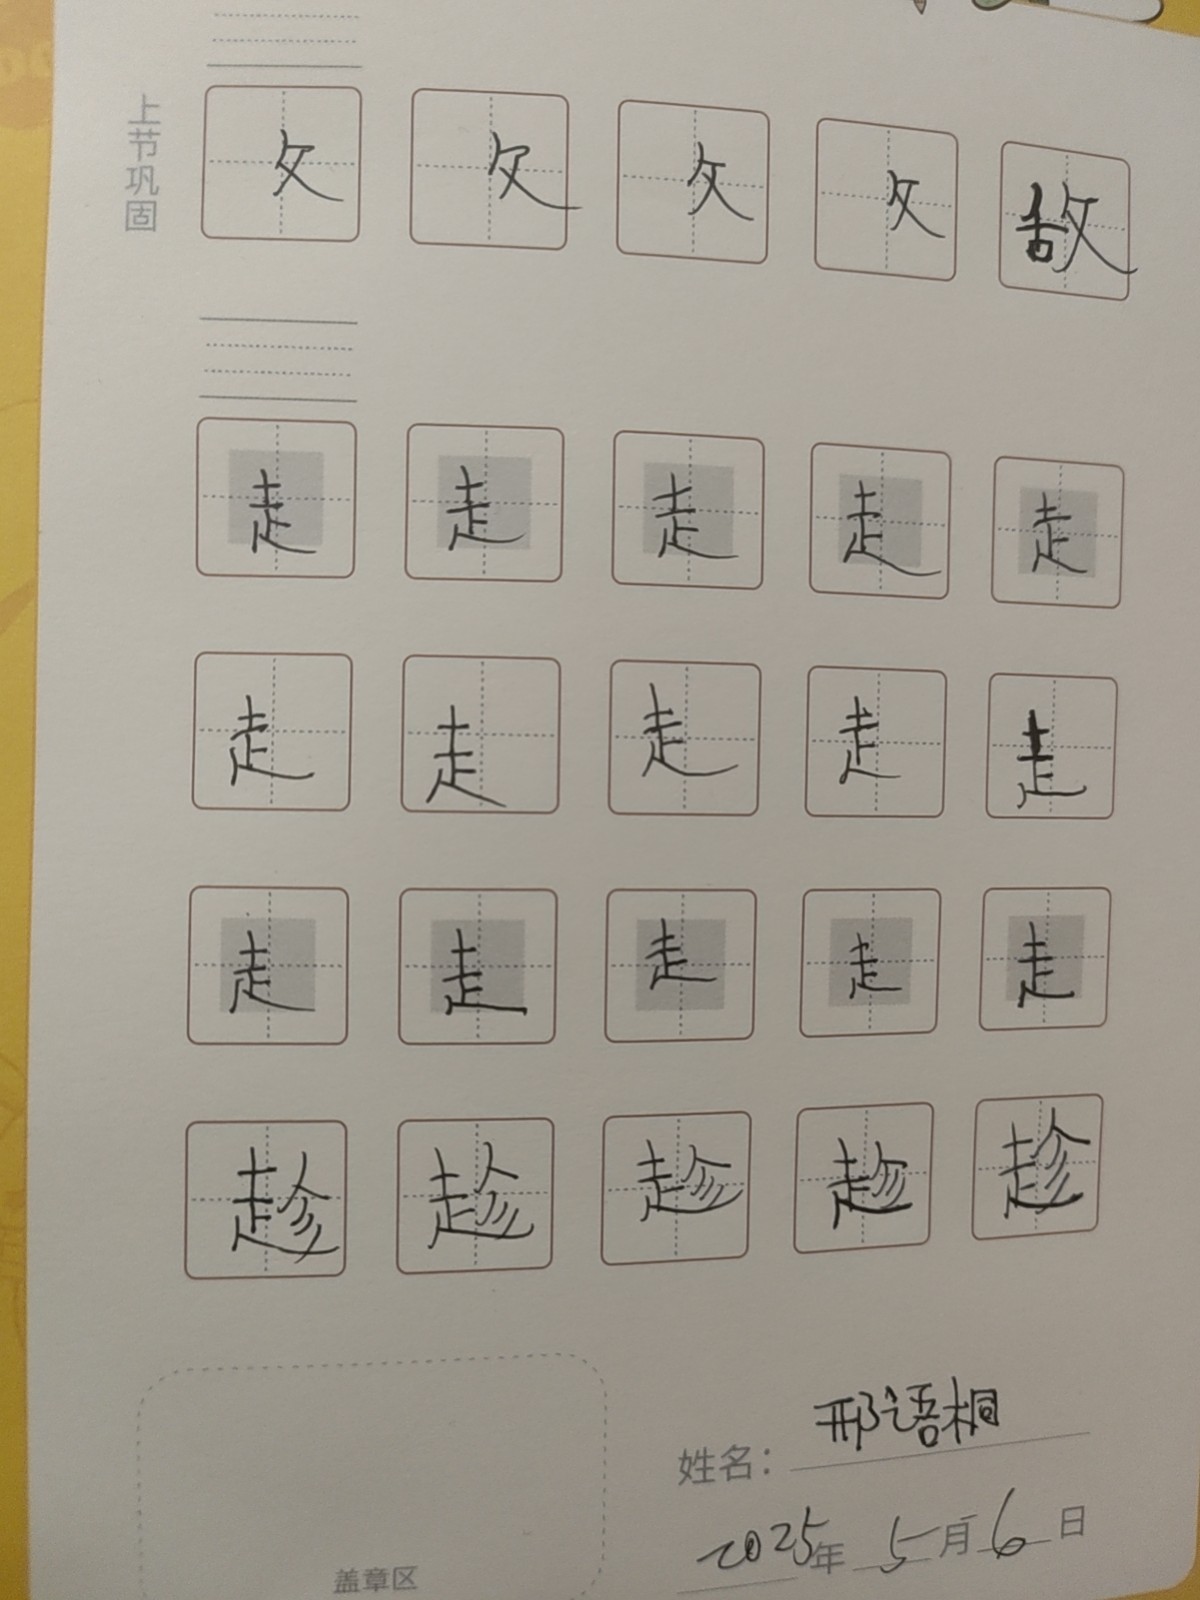 上节巩固
攵 攵 攵 攵 敌
走 走 走 走 走
走 走 走 走 走
走 走 走 走 走
趁 趁 趁 趁 趁
姓名：邢语桐
2025年 5月6日
盖章区